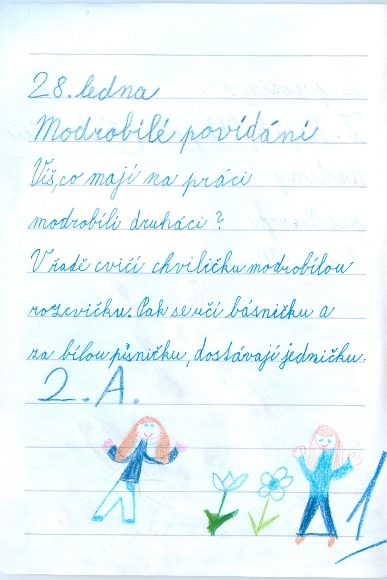 28. ledna
Modrobílé povídání
Víš, co mají na práci
modrobílí druháci?
V řadě cvičí chviličku modrobílou
rozcvičku. Pak se učí básničku a
za bílou písničku, dostávají jedničku.
2. A.
1